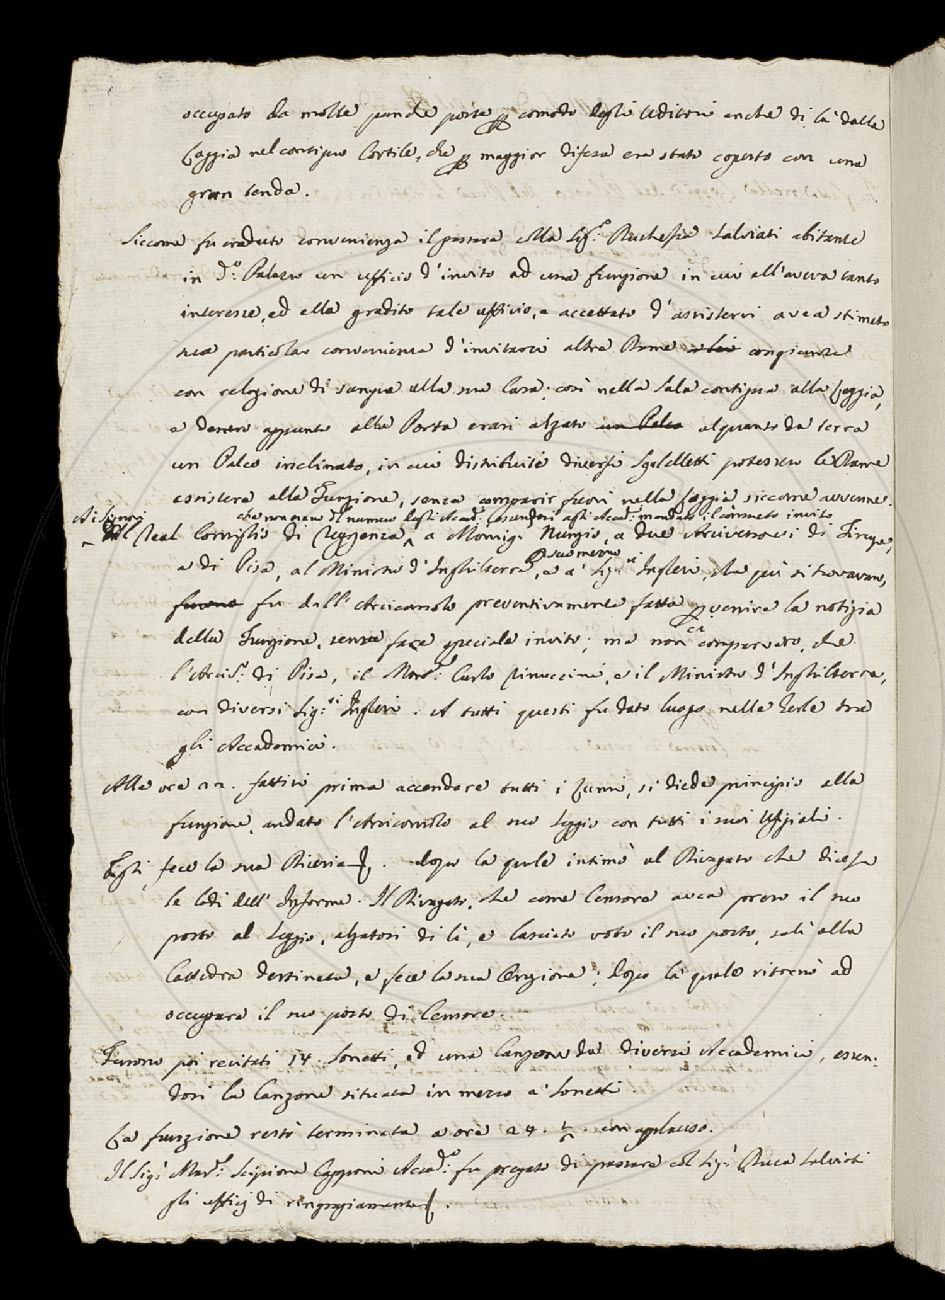 occupato da molte panche poste p comodo degli Uditori anche di là dalla
Loggia nel contiguo Cortile, che p maggior difesa era stato coperto con una
gran tenda.
Siccome fu creduto convenienza il passare colla Sig.ra Duchessa Salviati abitante
in d.o Palazzo un uffício d'invito ad una funzione in cui ell'aveva tanto
interesse, ed ella gradito tale uffício, e accettato d'assistervi avea stimato
sua particolar convenienza d'invitarvi altre Dame congiunte
con relazione di sangue alla sua Casa: così nella Sala contigua alla Loggia,
e dentro appunto alla Porta erasi alzato un Palco alquanto da terra
un Palco inclinato, in cui distribuite diversi Sgabelletti potessero le Dame
assistere alla Funzione, senza comparir fuori nella Loggia siccome avvenne.
Ai Signori che non erano del numero degli Accad. essendosi agli Accad. mandato il consueto invito
del Real Consiglio di Reggenza, a Monsig. Nunzio, a due Arcivescovi di Firenze,
e di Pisa, al Ministro d'Inghilterra, e a' Sig.ri Inglesi, che qui si trovavano,
furono fu dall'Arciconsolo preventivamente fatta pvenire la notizia
della Funzione, senza fare speciale invito; ma non ci comparvero, che
l'Arciv. di Pisa, il Mar. Carlo Rinuccini, e il Ministro d'Inghilterra,
con diversi Sig.ri Inglesi. A tutti questi fu dato luogo nelle Sedie tra
gli Accademici.
Alle ore 22. fattisi prima accendere tutti i Lumi, si diede principio alla
funzione, andato l'Arciconsolo al suo Seggio con tutti i suoi Ufiziali.
Egli fece la sua Diceria. dopo la quale intimò al Rivegato che dicesse
le Lodi dell'Informe. Il Rivegato, che come Censore avea preso il suo
posto al Seggio, alzatosi di lì, e lasciato voto il suo posto, salì alla
Cattedra destinata, e fece la sua Orazione; dopo la quale ritornò ad
occupare il suo posto di Censore.
Furono poi recitati 14. Sonetti, ed una Canzone da' diversi Accademici, essen-
dosi la Canzone situata in mezzo a' Sonetti
La funzione restò terminata a ore 24. ½. con applauso.
Il Sig. Mar. Scipione Capponi Accad.o fu pregato di passare col Sig. Duca Salviati
gli ufficj di ringraziamento.